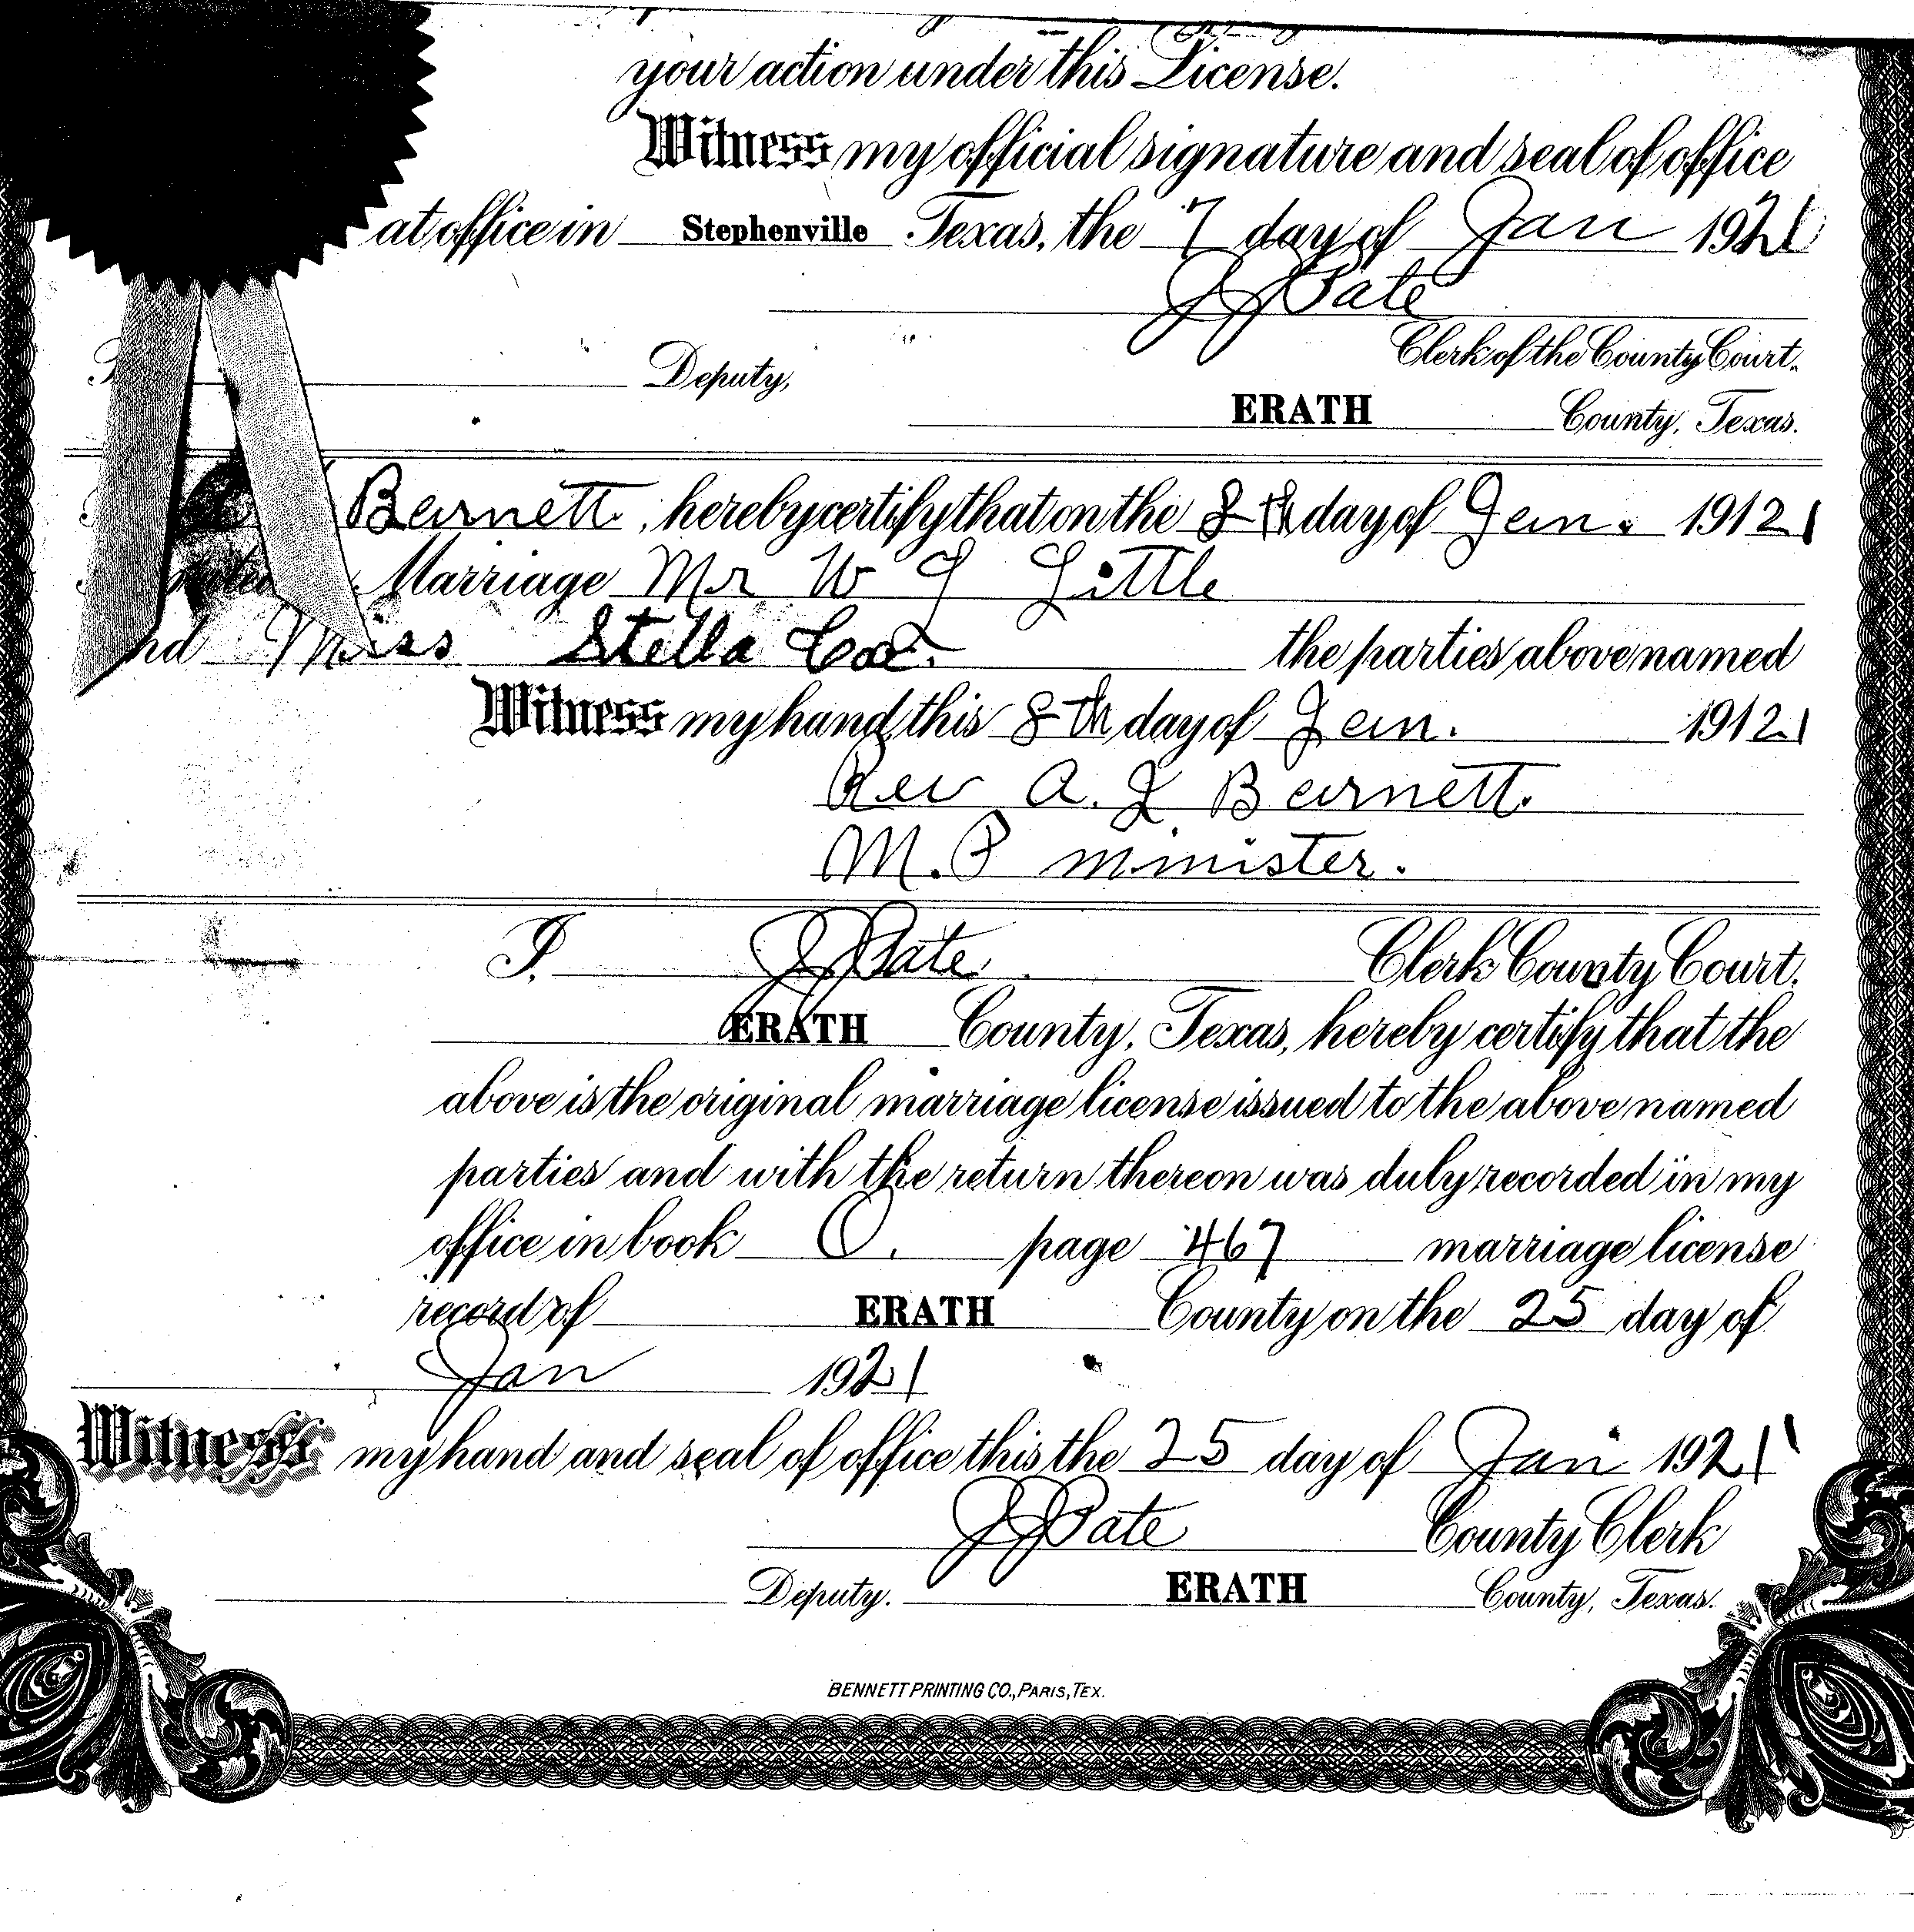 your action under this License.
Witness my official signature and seal of office
at office in Stephenville Texas, the 7 day of Jan 1921
JJ Pate
Clerk of the County Court.
Deputy,
ERATH County, Texas.
Barnett, hereby certify that on the 8th day of Jan. 19121
Marriage Mr W J Little
nd Miss Stella Cox. the parties above named
Witness my hand this 8th day of Jan. 19121
Rev A. J Barnett.
M. P minister.
I, JJ Pate Clerk County Court,
ERATH County, Texas, hereby certify that the
above is the original marriage license issued to the above named
parties and with the return thereon was duly recorded in my
office in book O. page 467 marriage license
record of ERATH County on the 25 day of
Jan 1921
Witness my hand and seal of office this the 25 day of Jan 1921
JJ Pate County Clerk
Deputy. ERATH County, Texas.
BENNETT PRINTING CO., PARIS, TEX.